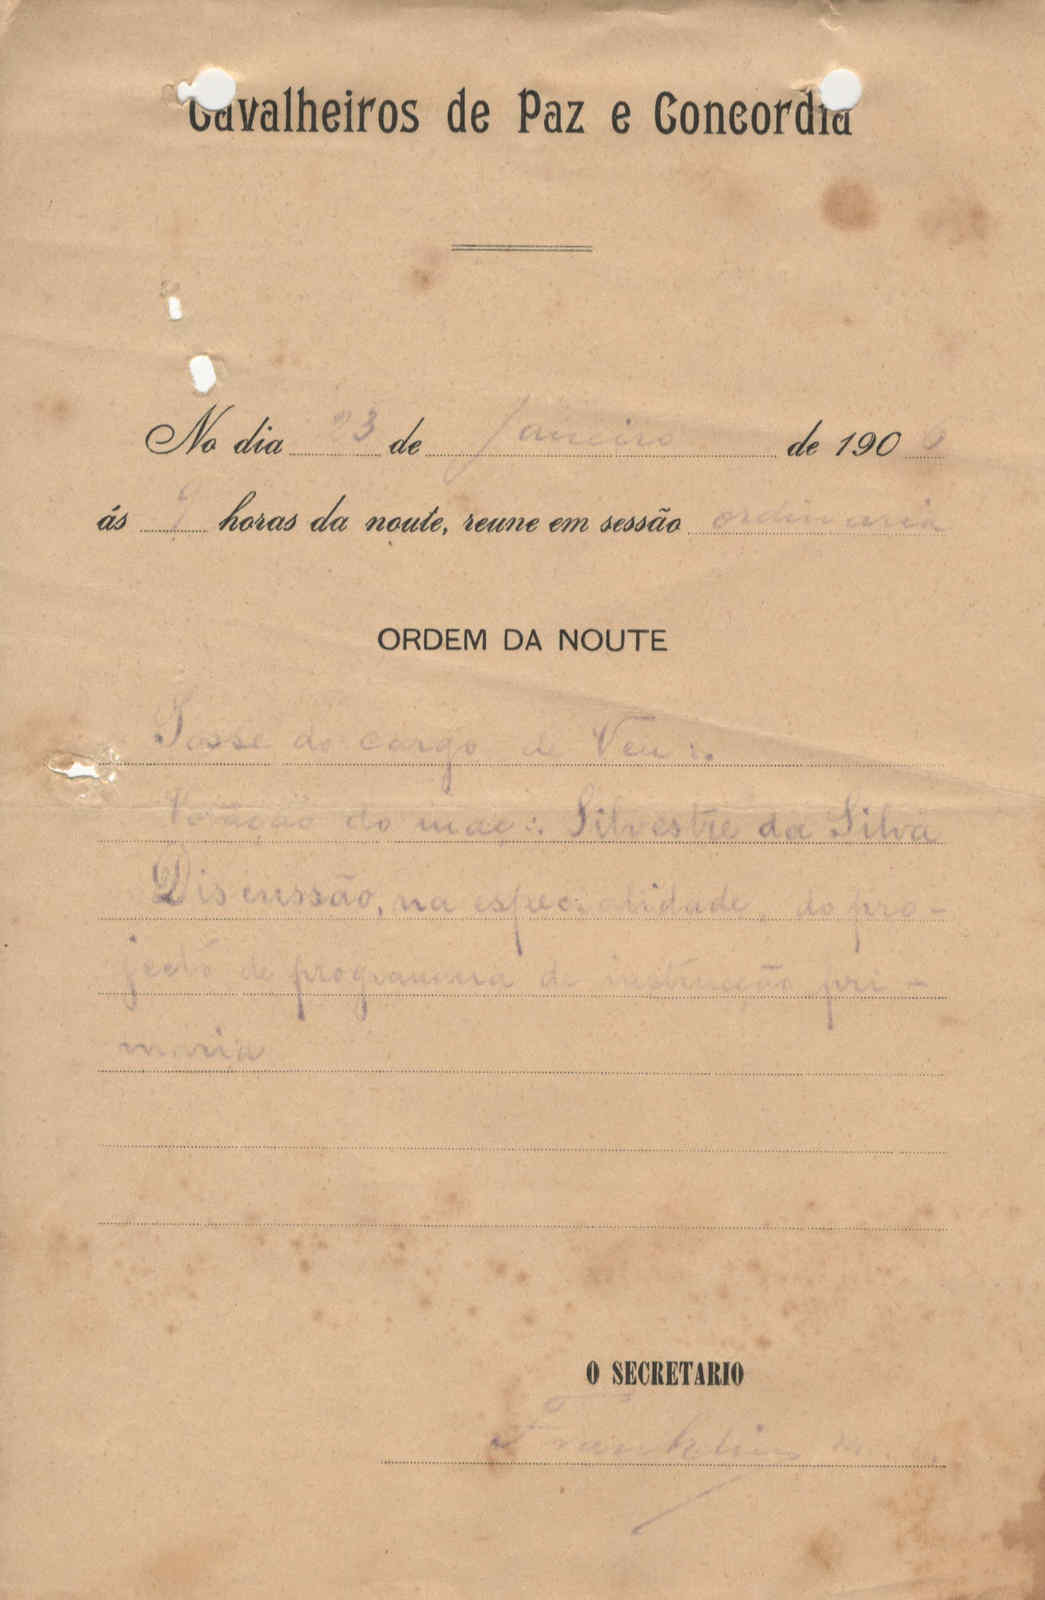 Cavalheiros de Paz e Concordia
No dia 23 de Janeiro de 1906
ás 9 horas da noute, reune em sessão ordinaria
ORDEM DA NOUTE
Posse do cargo de Ven∴
Votação do maç∴ Silvestre da Silva
Discussão, na especialidade, do pro-
jecto de programma de instrucção pri-
maria
O SECRETARIO
Franklin